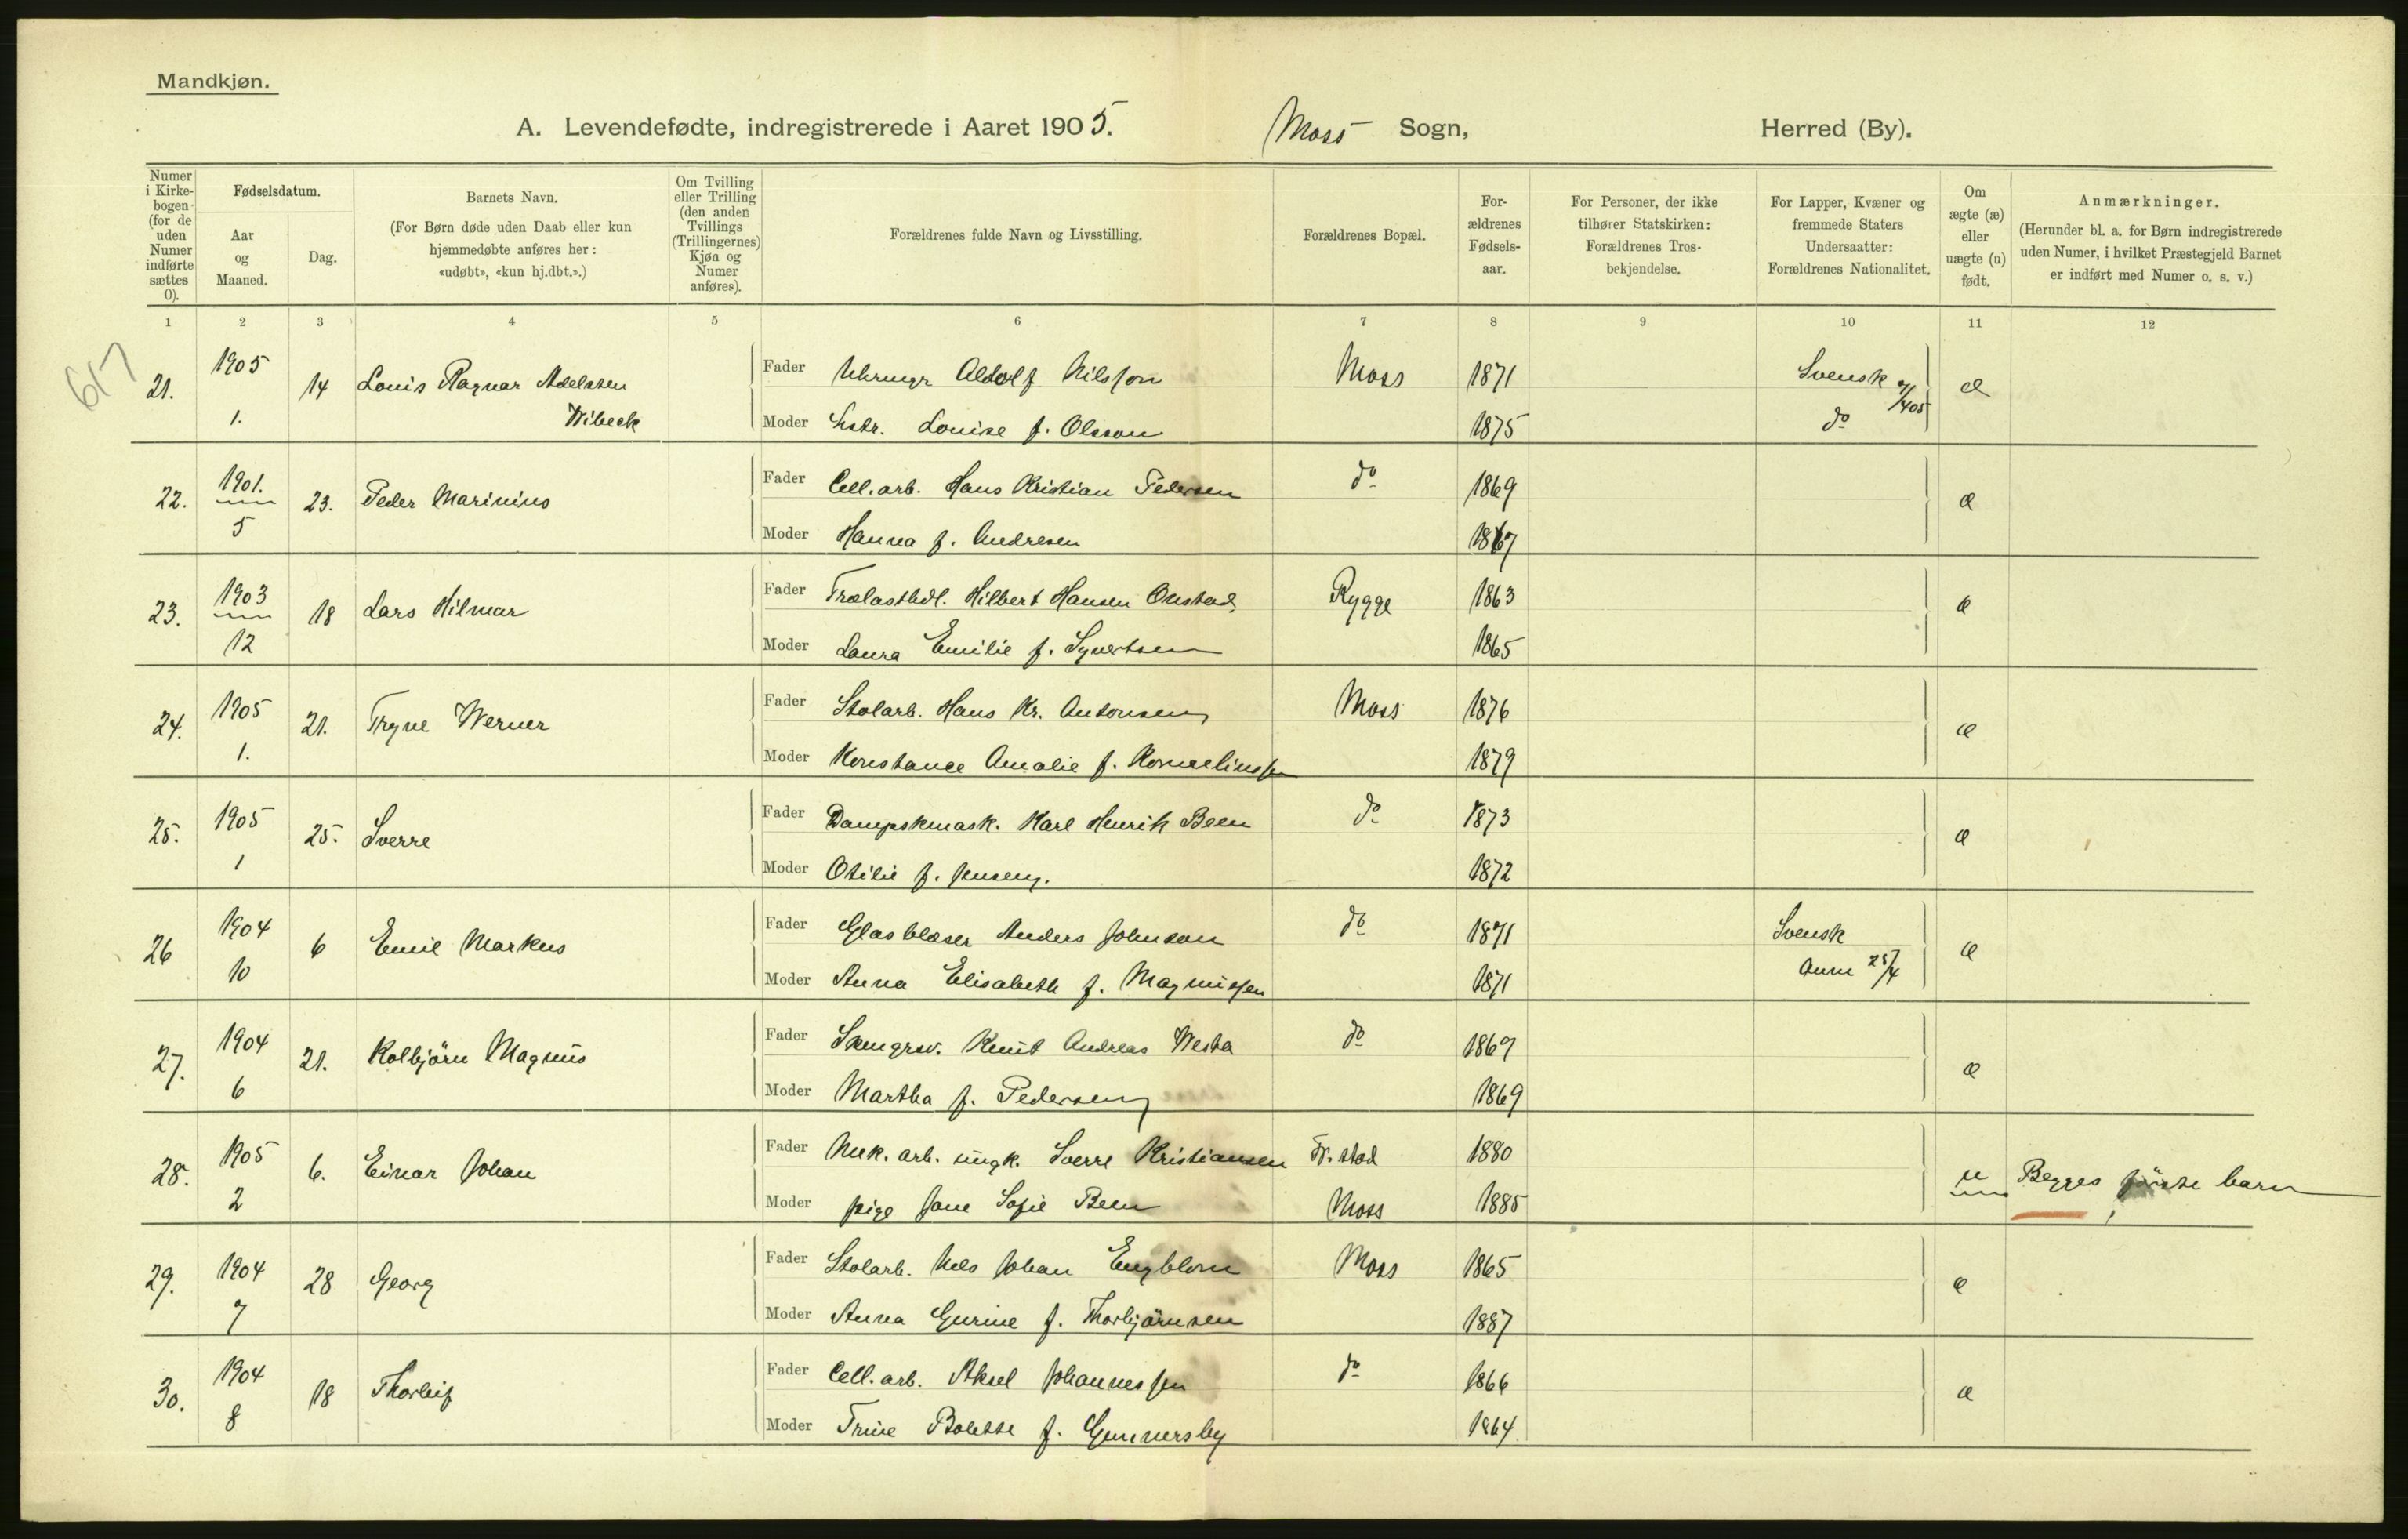 Mandkjøn.
A. Levendefødte, indregistrerede i Aaret 1905. Moss Sogn, Herred (By).
Numer i Kirkebogen (for de uden Numer indførte sættes 0).
Fødselsdatum.
Aar og Maaned.
Dag.
Barnets Navn.
(For Børn døde uden Daab eller kun hjemmedøbte anføres her: «udøbt», «kun hj.dbt.».)
Om Tvilling eller Trilling (den anden Tvillings (Trillingernes) Kjøn og Numer anføres).
Forældrenes fulde Navn og Livsstilling.
Forældrenes Bopæl.
Forældrenes Fødselsaar.
For Personer, der ikke tilhører Statskirken: Forældrenes Trosbekjendelse.
For Lapper, Kvæner og fremmede Staters Undersaatter: Forældrenes Nationalitet.
Om ægte (æ) eller uægte (u) født.
Anmærkninger.
(Herunder bl. a. for Børn indregistrerede uden Numer, i hvilket Præstegjeld Barnet er indført med Numer o. s. v.)
1 2 3 4 5 6 7 8 9 10 11 12
617
21. 1905 14 Louis Ragnar Adelsten Fader Uhrmgr Aldolf Nilsson Moss 1871 Svensk æ
1. Wibeck Moder Hstr. Louise f. Olsson 1875 do
22. 1901. 23. Peder Marinius Fader Cell. arb. Hans Kristian Pedersen do 1869 æ
5 Moder Hanna f. Andresen 1867
23. 1903 18 Lars Hilmar Fader Trælasthdl. Hilbert Hansen Onstad Rygge 1863 æ
12 Moder Laura Emilie f. Syvertsen 1865
24. 1905 21. Trygve Werner Fader Stolarb. Hans Kr. Antonsen Moss 1876 æ
1. Moder Konstance Amalie f. Korneliussen 1879
25. 1905 25. Sverre Fader Dampskmask. Karl Henrik Been do 1873 æ
1 Moder Otilie f. Jensen. 1872
26 1904 6 Emil Markus Fader Glasblæser Anders Johnson do 1871 Svensk æ
10 Moder Anna Elisabeth f. Magnussen 1871 Anm 25/4
27. 1904 21. Kolbjörn Magnus Fader Knut Andreas Westa do 1869 æ
6 Moder Martha f. Pedersen 1869
28. 1905 6. Einar Johan Fader Mek. arb. ungk. Sverre Kristiansen Fr.stad 1880 u Begges förste barn
2 Moder pige Jane Sofie Been Moss 1885
29. 1904 28 Georg Fader Stolarb. Nils Johan Engblom Moss 1865 æ
7 Moder Anna Gurine f. Thorbjörnsen 1887
30. 1904 18 Thorleif Fader Cell. arb. Aksel Johannessen do 1866 æ
8 Moder Trine Bolette f. Gunnersby 1864